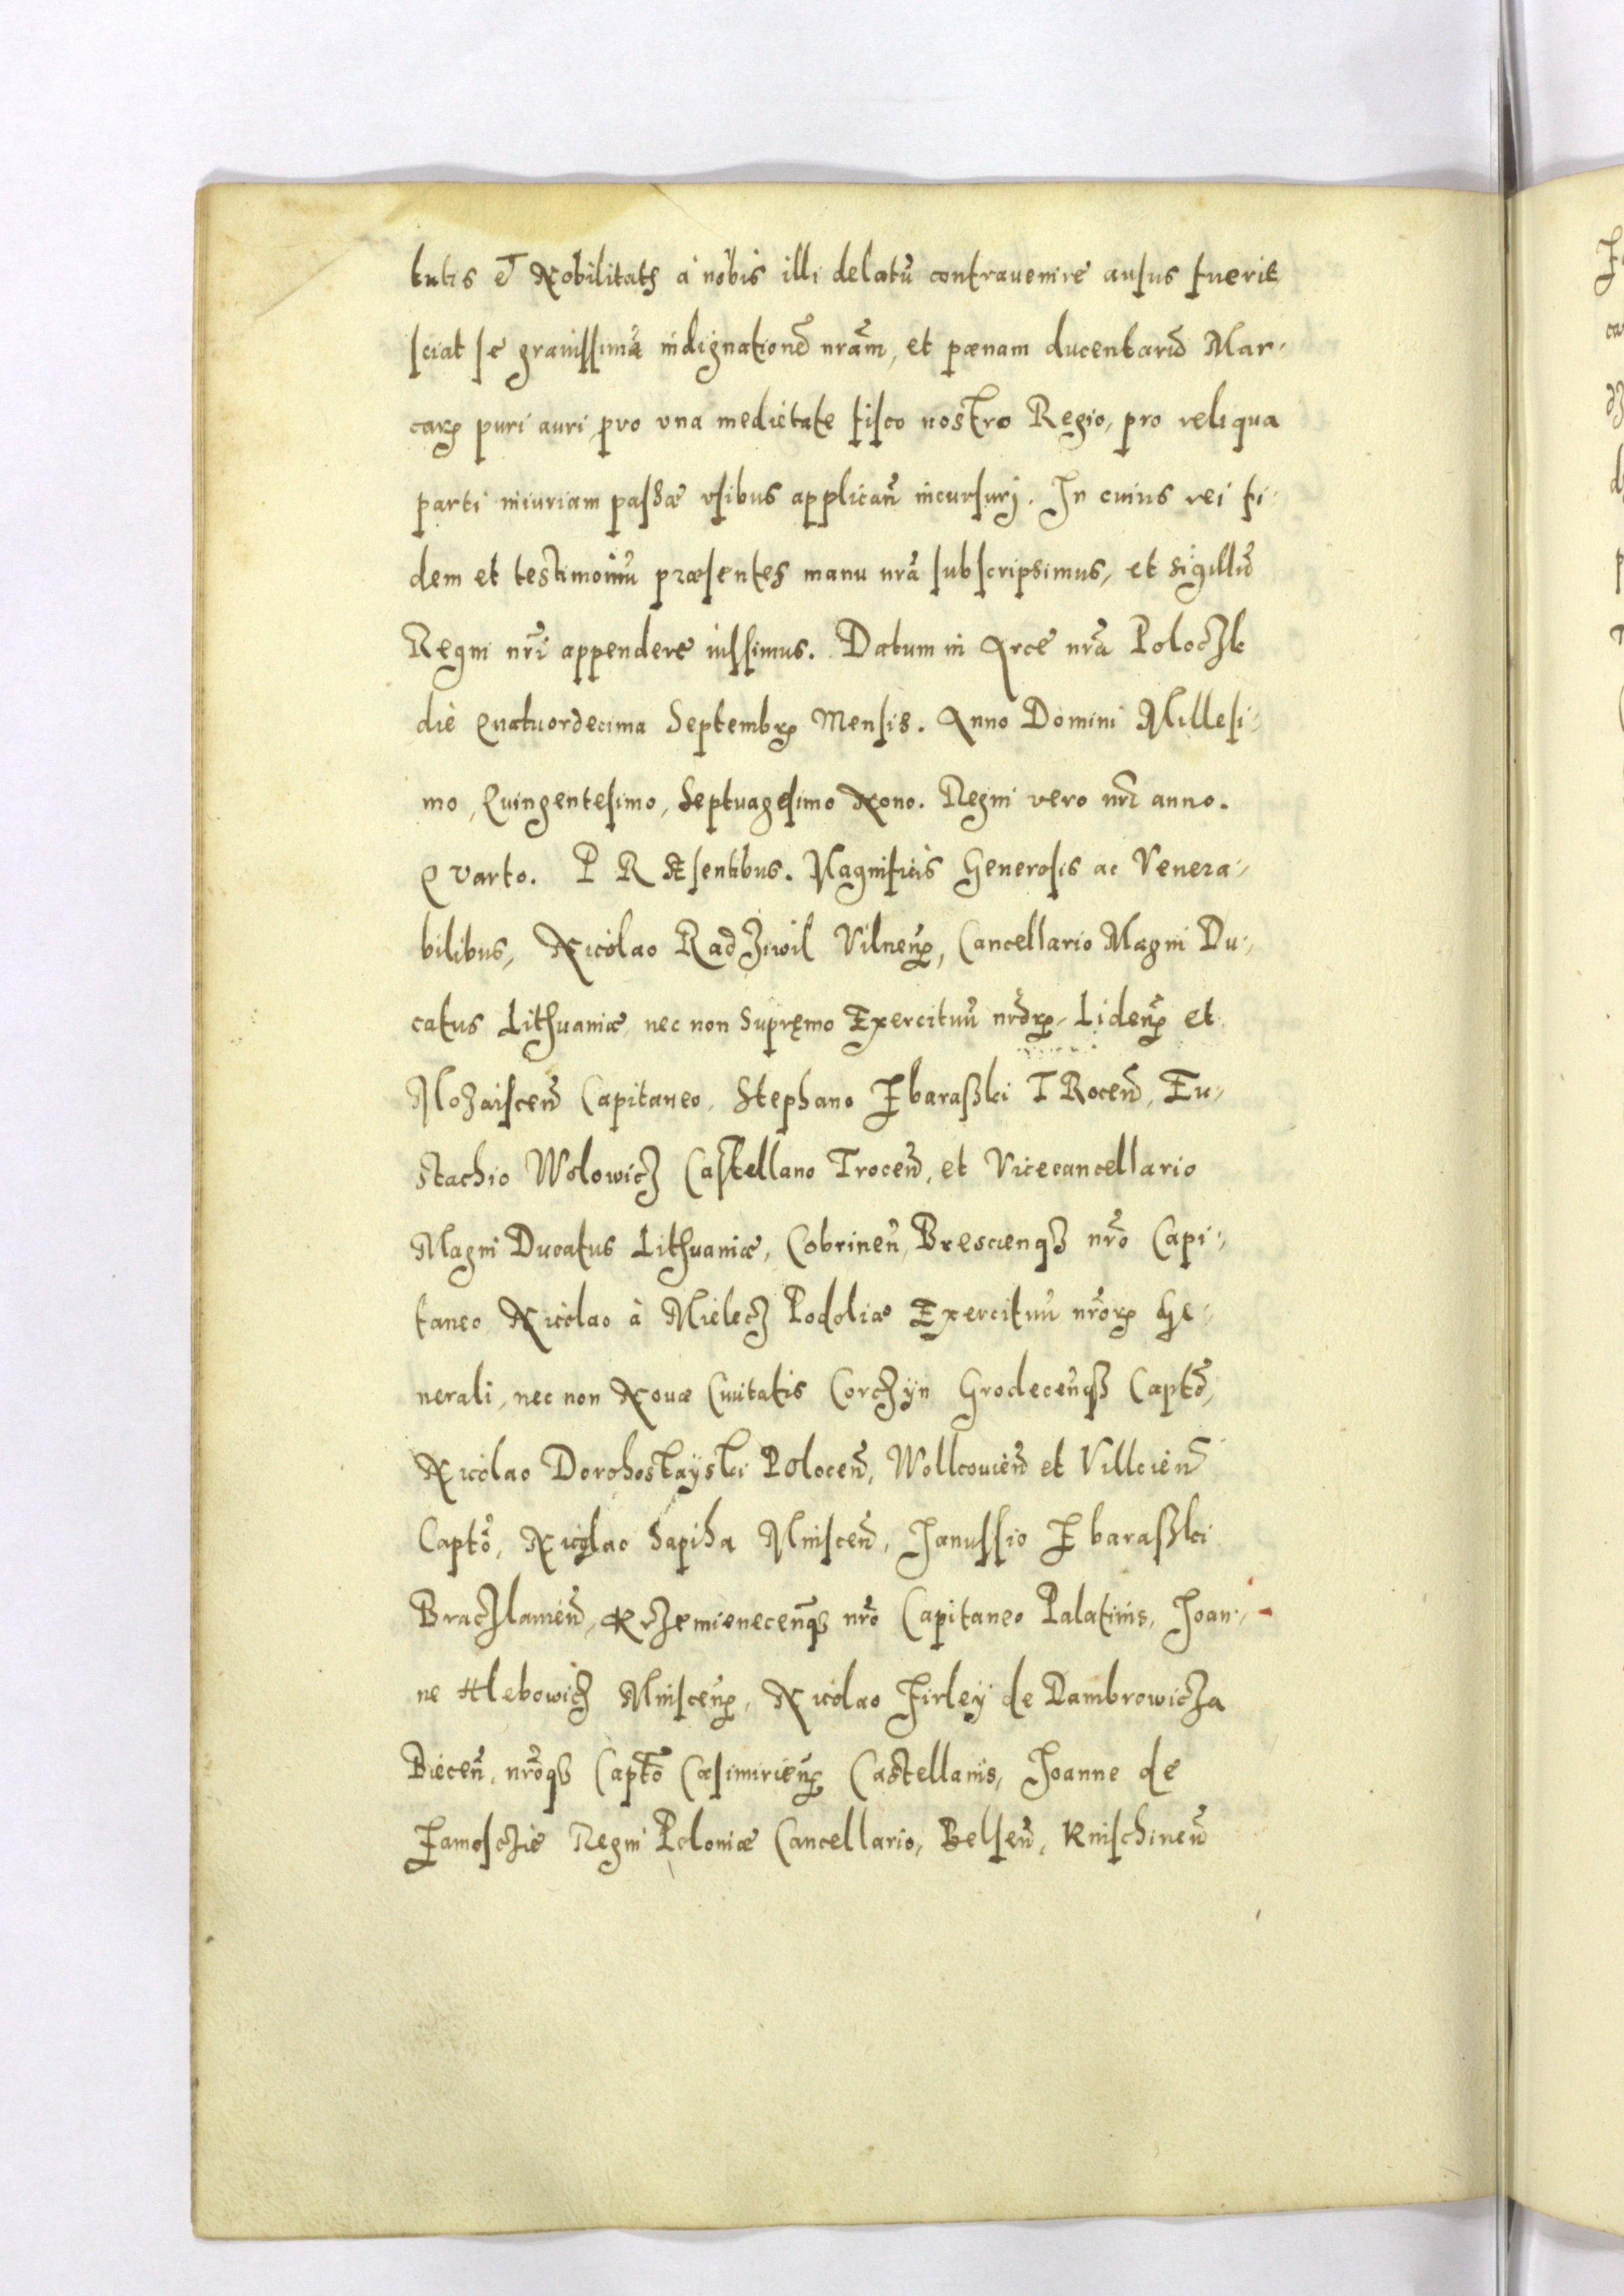 tutis et Nobilitatꝭ à nobis illi delatũ contrauenire ausus fuerit
sciat se grauissimã indignationẽ nrãm, et pœnam ducentarũ Mar-
carꝝ puri auri, pro vna medietate fisco nostro Regio, pro reliqua
parti iniuriam passæ vsibus applicañ incursurj. In cuius rei fi-
dem et testimoniũ præsentes manu nrã subscripsimus, et sigillũ
Regni nrĩ appendere iussimus. Datum in Arce nrã Poloczk
die Quatuordecima Septembrꝝ Mensis. Anno Domini Millesi-
mo, Quingentesimo, Septuagesimo Nono. Regni vero nrĩ anno.
Qvarto. PRÆsentibus. Magnificis Generosis ac Venera-
bilibus, Nicolao Radziwil Vilneñ, Cancellario Magni Du-
catus Lithuaniæ, nec non Supręmo Exercituũ nrõrꝝ, Lideñ et
Mozaisceñ Capitaneo, Stephano Zbaraßki TRoceñ, Eu-
stachio Wolowicz Castellano Troceñ, et Vicecancellario
Magni Ducatus Lithuaniæ, Cobrineñ, Brescienqꝫ nrõ Capi-
taneo Nicolao à Mielecz Podoliæ Exercituũ nrõrꝝ Ge-
nerali, nec non Nouæ Ciuitatis Corczÿn Grodeceñqꝫ Captõ,
Nicolao Dorohostaÿski Poloceñ, Wolkouieñ et Vilkieñ
Captõ, Nicolao Sapiha Minsceñ, Janussio Zbaraßki
Braczlauieñ, Krzemieneceñqꝫ nrõ Capitaneo Palatinis, Joan-
ne Hlebowicz Minsceñ, Nicolao Firleÿ de Dambrowicza
Bieceñ, nrõqꝫ Captõ Casimirieñ Castellanis, Joanne de
Zamosczie Regni Poloniæ Cancellario, Belseñ, Knischineñ